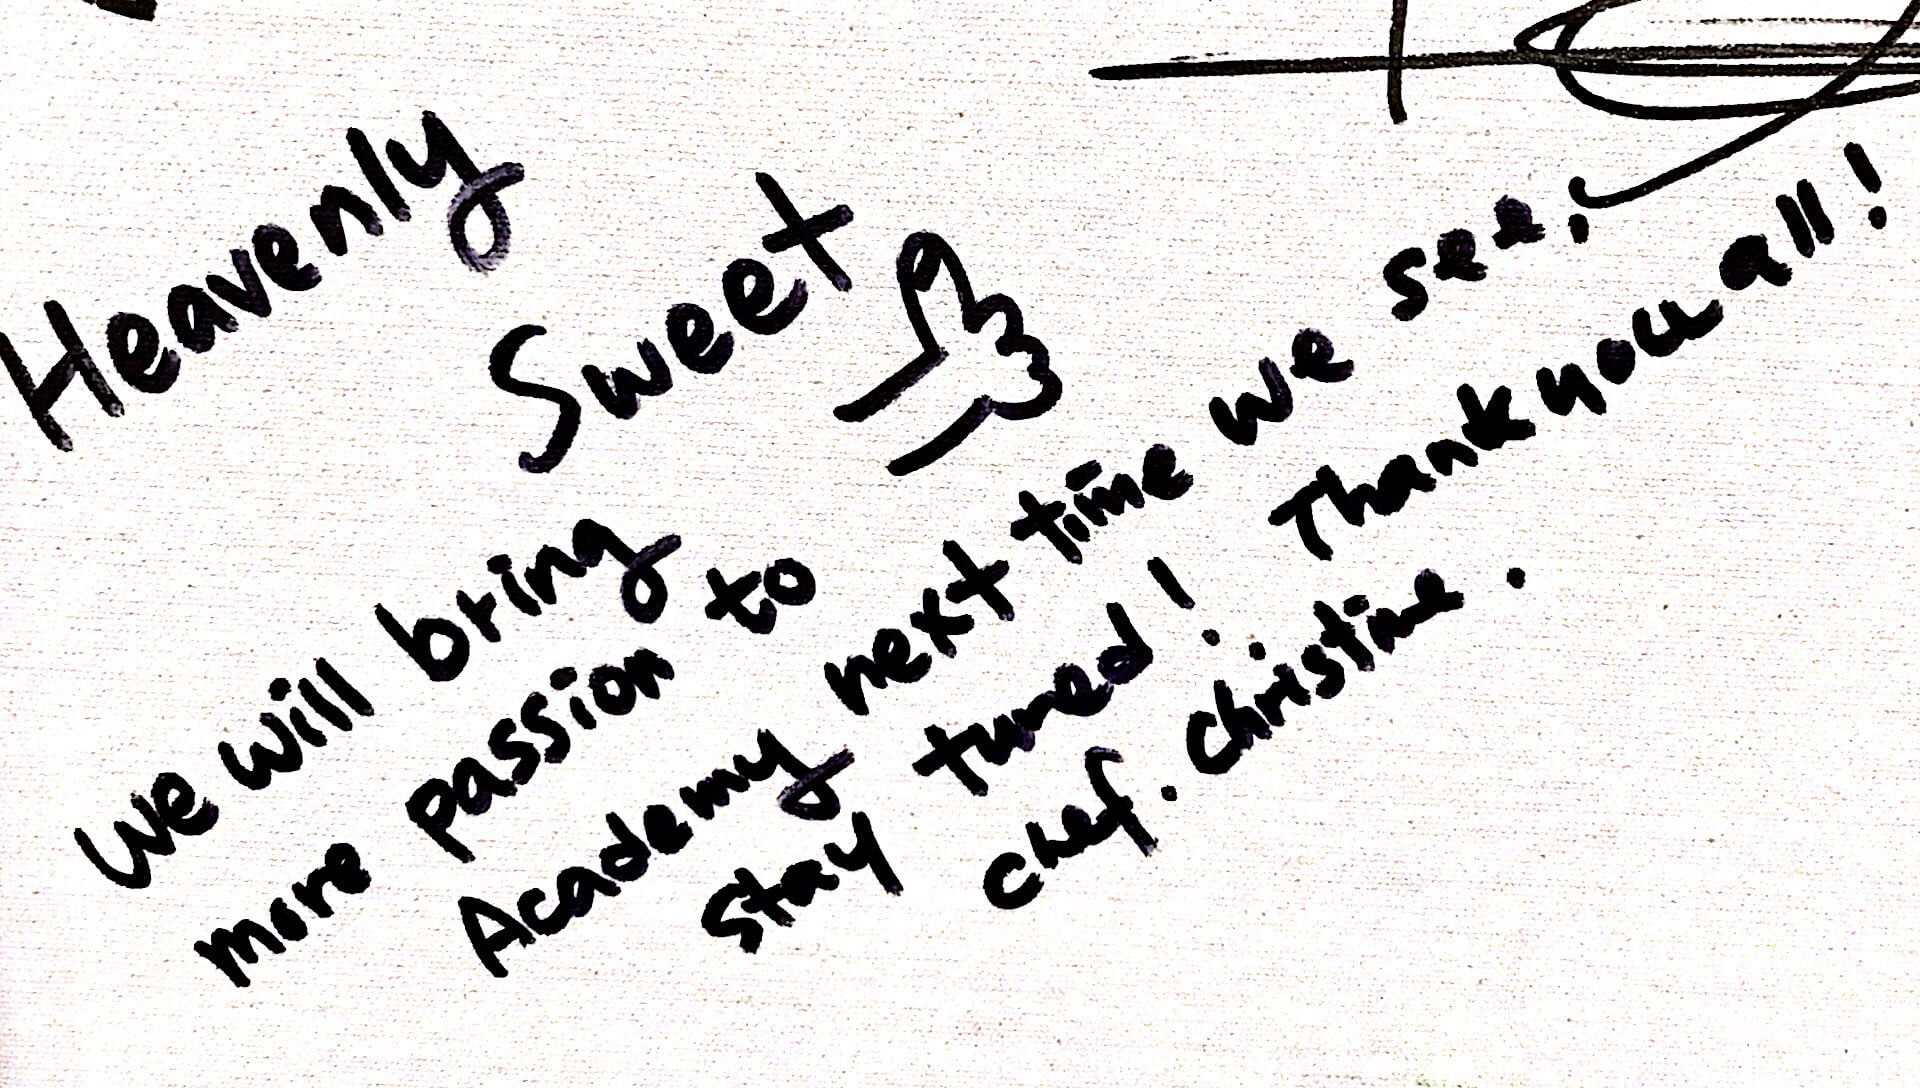 Heavenly
Sweet
We will bring
more passion to
Academy next time we see.
Stay tuned! Thank you all!
chef. Christine.